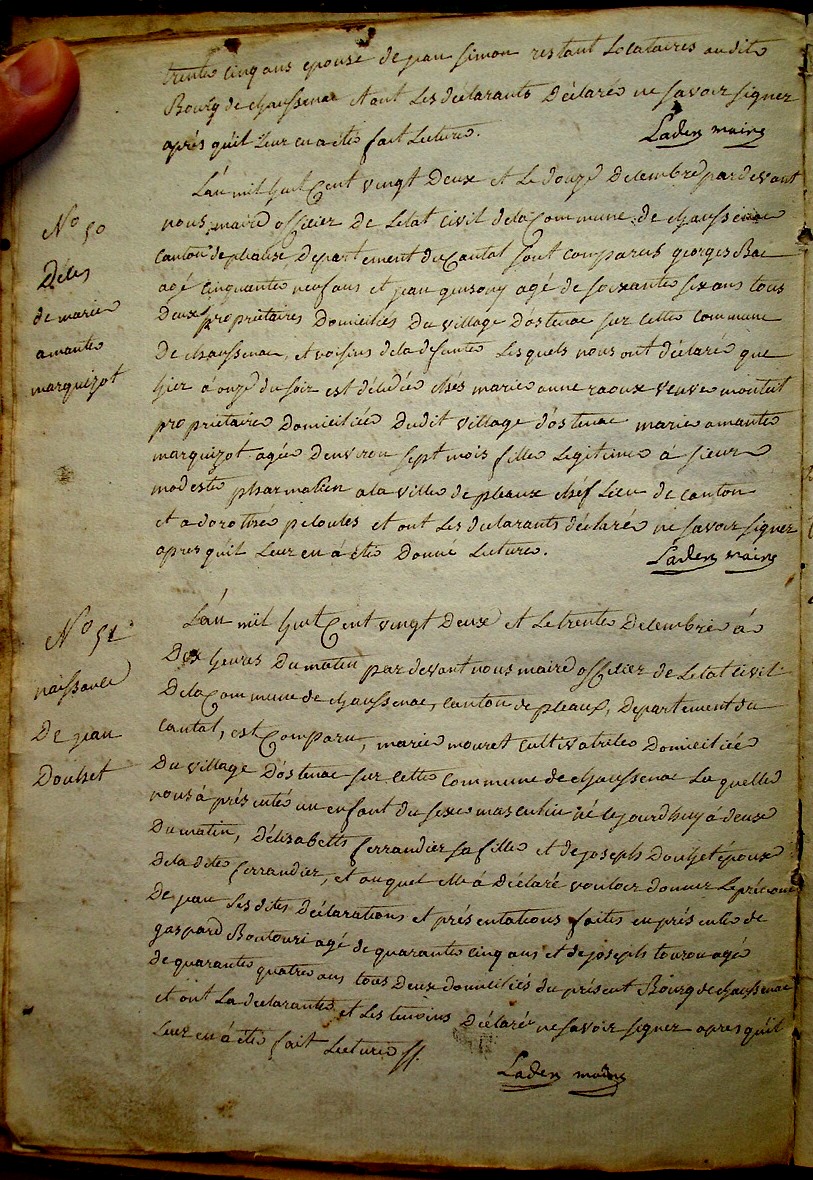 trente cinq ans epouse de jean Simon restant Locataires audite
Bourg de chaussenac et ont Les declarants Déclaré ne savoir signer
après qu'il Leur en a été fait Lecture.
Laden maire
N° 50
Décés
de marie
amante
marquizot
L'an mil huit Cent vingt Deux et Le douze Decembre par devant
nous maire officier De Letat Civil dela Commune de chaussenac
canton de pleaux Departement du Cantal sont comparus georges Bac
agé cinquante neuf ans et jean quisony agé de soixante six ans tous
Deux propriétaires Domiciliés Du village D'ostenac sur cette commune
De chaussenac, et voisins dela defunte Les quels nous ont déclaré que
hier à onze du soir est décédée chés marie anne raoux veuve monteil
propriétaire Domiciliée Dudit village d'ostenac marie amante
marquizot agée D'environ sept mois fille Legitime à sieur
modeste pharmacien a la ville de pleaux chéf Lieu de canton
et a dorothée peloutes et ont Les declarants déclaré ne savoir signer
apres qu'il Leur en à été Donné Lecture.
Laden maire
N° 51
naissance
De jean
Doulset
L'an mil huit Cent vingt Deux et Le trente Decembre à
Dix heures Du matin par devant nous maire officier de Letat Civil
Dela Commune de chaussenac, canton de pleaux, Departement du
cantal, est Comparu, marie mouret cultivatrice Domiciliée
Du village D'ostenac sur cette commune de chaussenac La quelle
nous à présenté un enfant du sexe masculin né cejourdhuy à deux
Du matin, D'élizabette ferrandier sa fille et de joseph Doulset époux
dela dite ferrandier, et auquel elle à Déclaré vouloir donner Le prénom
De jean Les dites Déclarations et présentations faites en présence de
gaspard Boutouri agé de quarante cinq ans et de joseph touzou agé
de quarante quatre ans tous Deux domiciliés du présent Bourg de chaussenac
et ont La declarante et Les temoins Déclaré ne savoir signer apres qu'il
Leur en à été fait Lecture //.
Laden maire